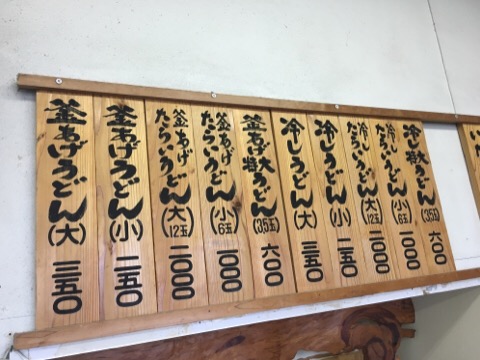 釜あげうどん(大) 三五〇
釜あげうどん(小) 二五〇
釜あげたらいうどん(大12玉) 二〇〇〇
釜あげたらいうどん(小6玉) 一〇〇〇
釜あげ特大うどん(3.5玉) 六〇〇
冷しうどん(大) 三五〇
冷しうどん(小) 二五〇
冷したらいうどん(大12玉) 二〇〇〇
冷したらいうどん(小6玉) 一〇〇〇
冷し特大うどん(3.5玉) 六〇〇